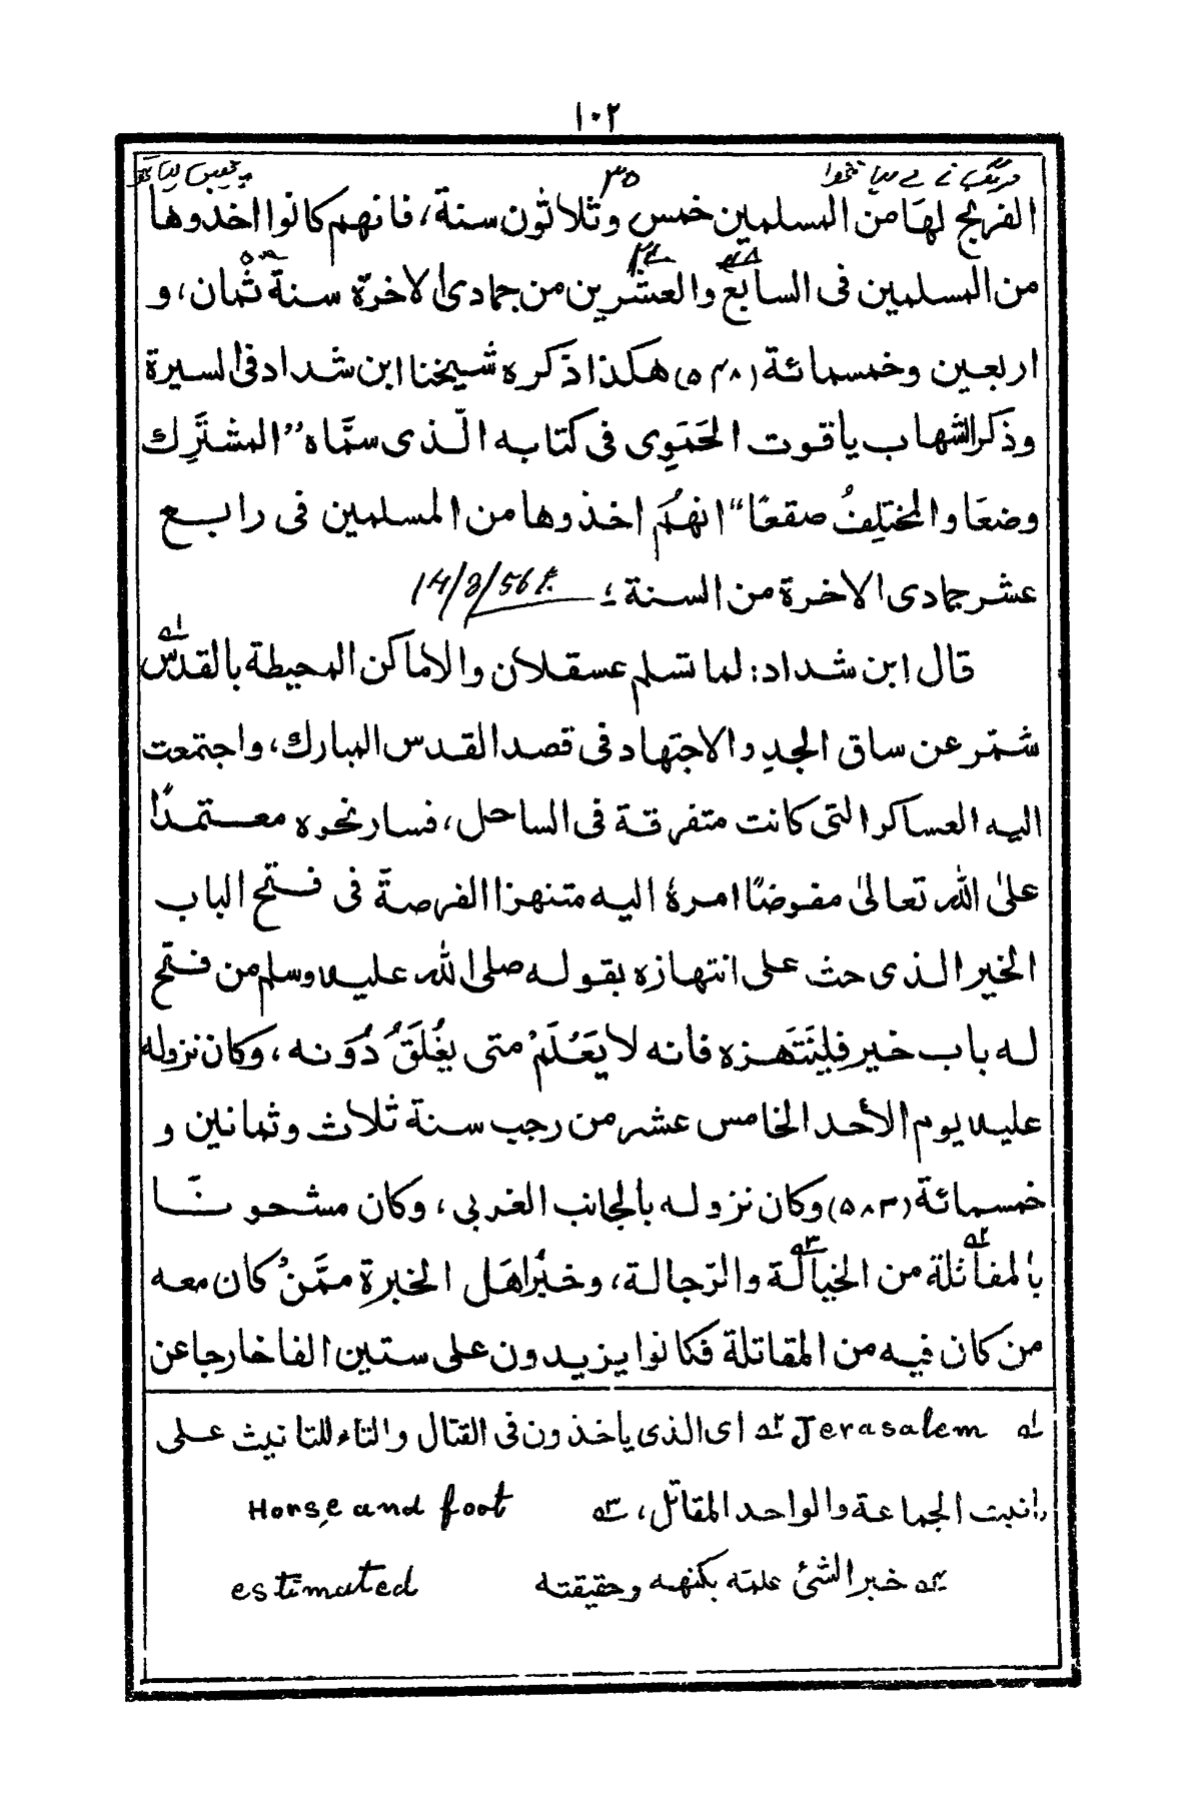 ١٠٢
٣٥
الفرنج لهَا من المسلمين خمس وثلاثون سنة، فانهم كانوا اخذوها
من المسلمين فى السابع والعشرين من جمادى الاخرة سنة ثمان، و
اربعين وخمسمائة (٥٣٨) هكذا ذكره شيخنا ابن شداد فى السيرة
وذكر الشهاب ياقوت الحَمَوِى فى كتابه الّذى سمَّاه ”المشترِك
وضعَا والمختلِفُ صقعًا“ انهُم اخذوها من المسلمين فى رابع
عشر جمادى الاخرة من السنة؛ 14/8/56
قال ابن شداد: لما تسلم عسقلان والاماكن المحيطة بالقدس
شمّر عن ساق الجدِ والاجتهاد فى قصد القدس المبارك، واجتمعت
اليه العساكر التى كانت متفرقة فى الساحل، فسار نحوه معتمدًا
علىٰ الله تعالىٰ مفوضًا امرهٗ اليه متنهزا الفرصةَ فى فتح الباب
الخير الذى حث على انتهازه بقوله صلى الله عليه وسلم من فتح
له باب خير فلينَتَهزه فانه لا يَعْلَمْ متى يغُلَقُ دُونه، وكان نزوله
عليه يوم الأحد الخامس عشر من رجب سنة ثلاث وثمانين و
خمسمائة (٥٨٣) وكان نزوله بالجانب الغربى، وكان مشحونًا
بالمقاتلة من الخيالة والرّجالة، وخبُراهَل الخبرةِ ممَّنْ كان معه
من كان فيه من المقاتلة فكانوا يزيدون على ستين الفا خارجا عن
١ه Jerasalem ٢ه اى الذى ياخذون فى القتال والتاء للتانيث على
تانيث الجماعة والواحد المقاتل، ٣ه Horse and foot
٤ه خبر الشئ علمته بكنهه وحقيقته estimated